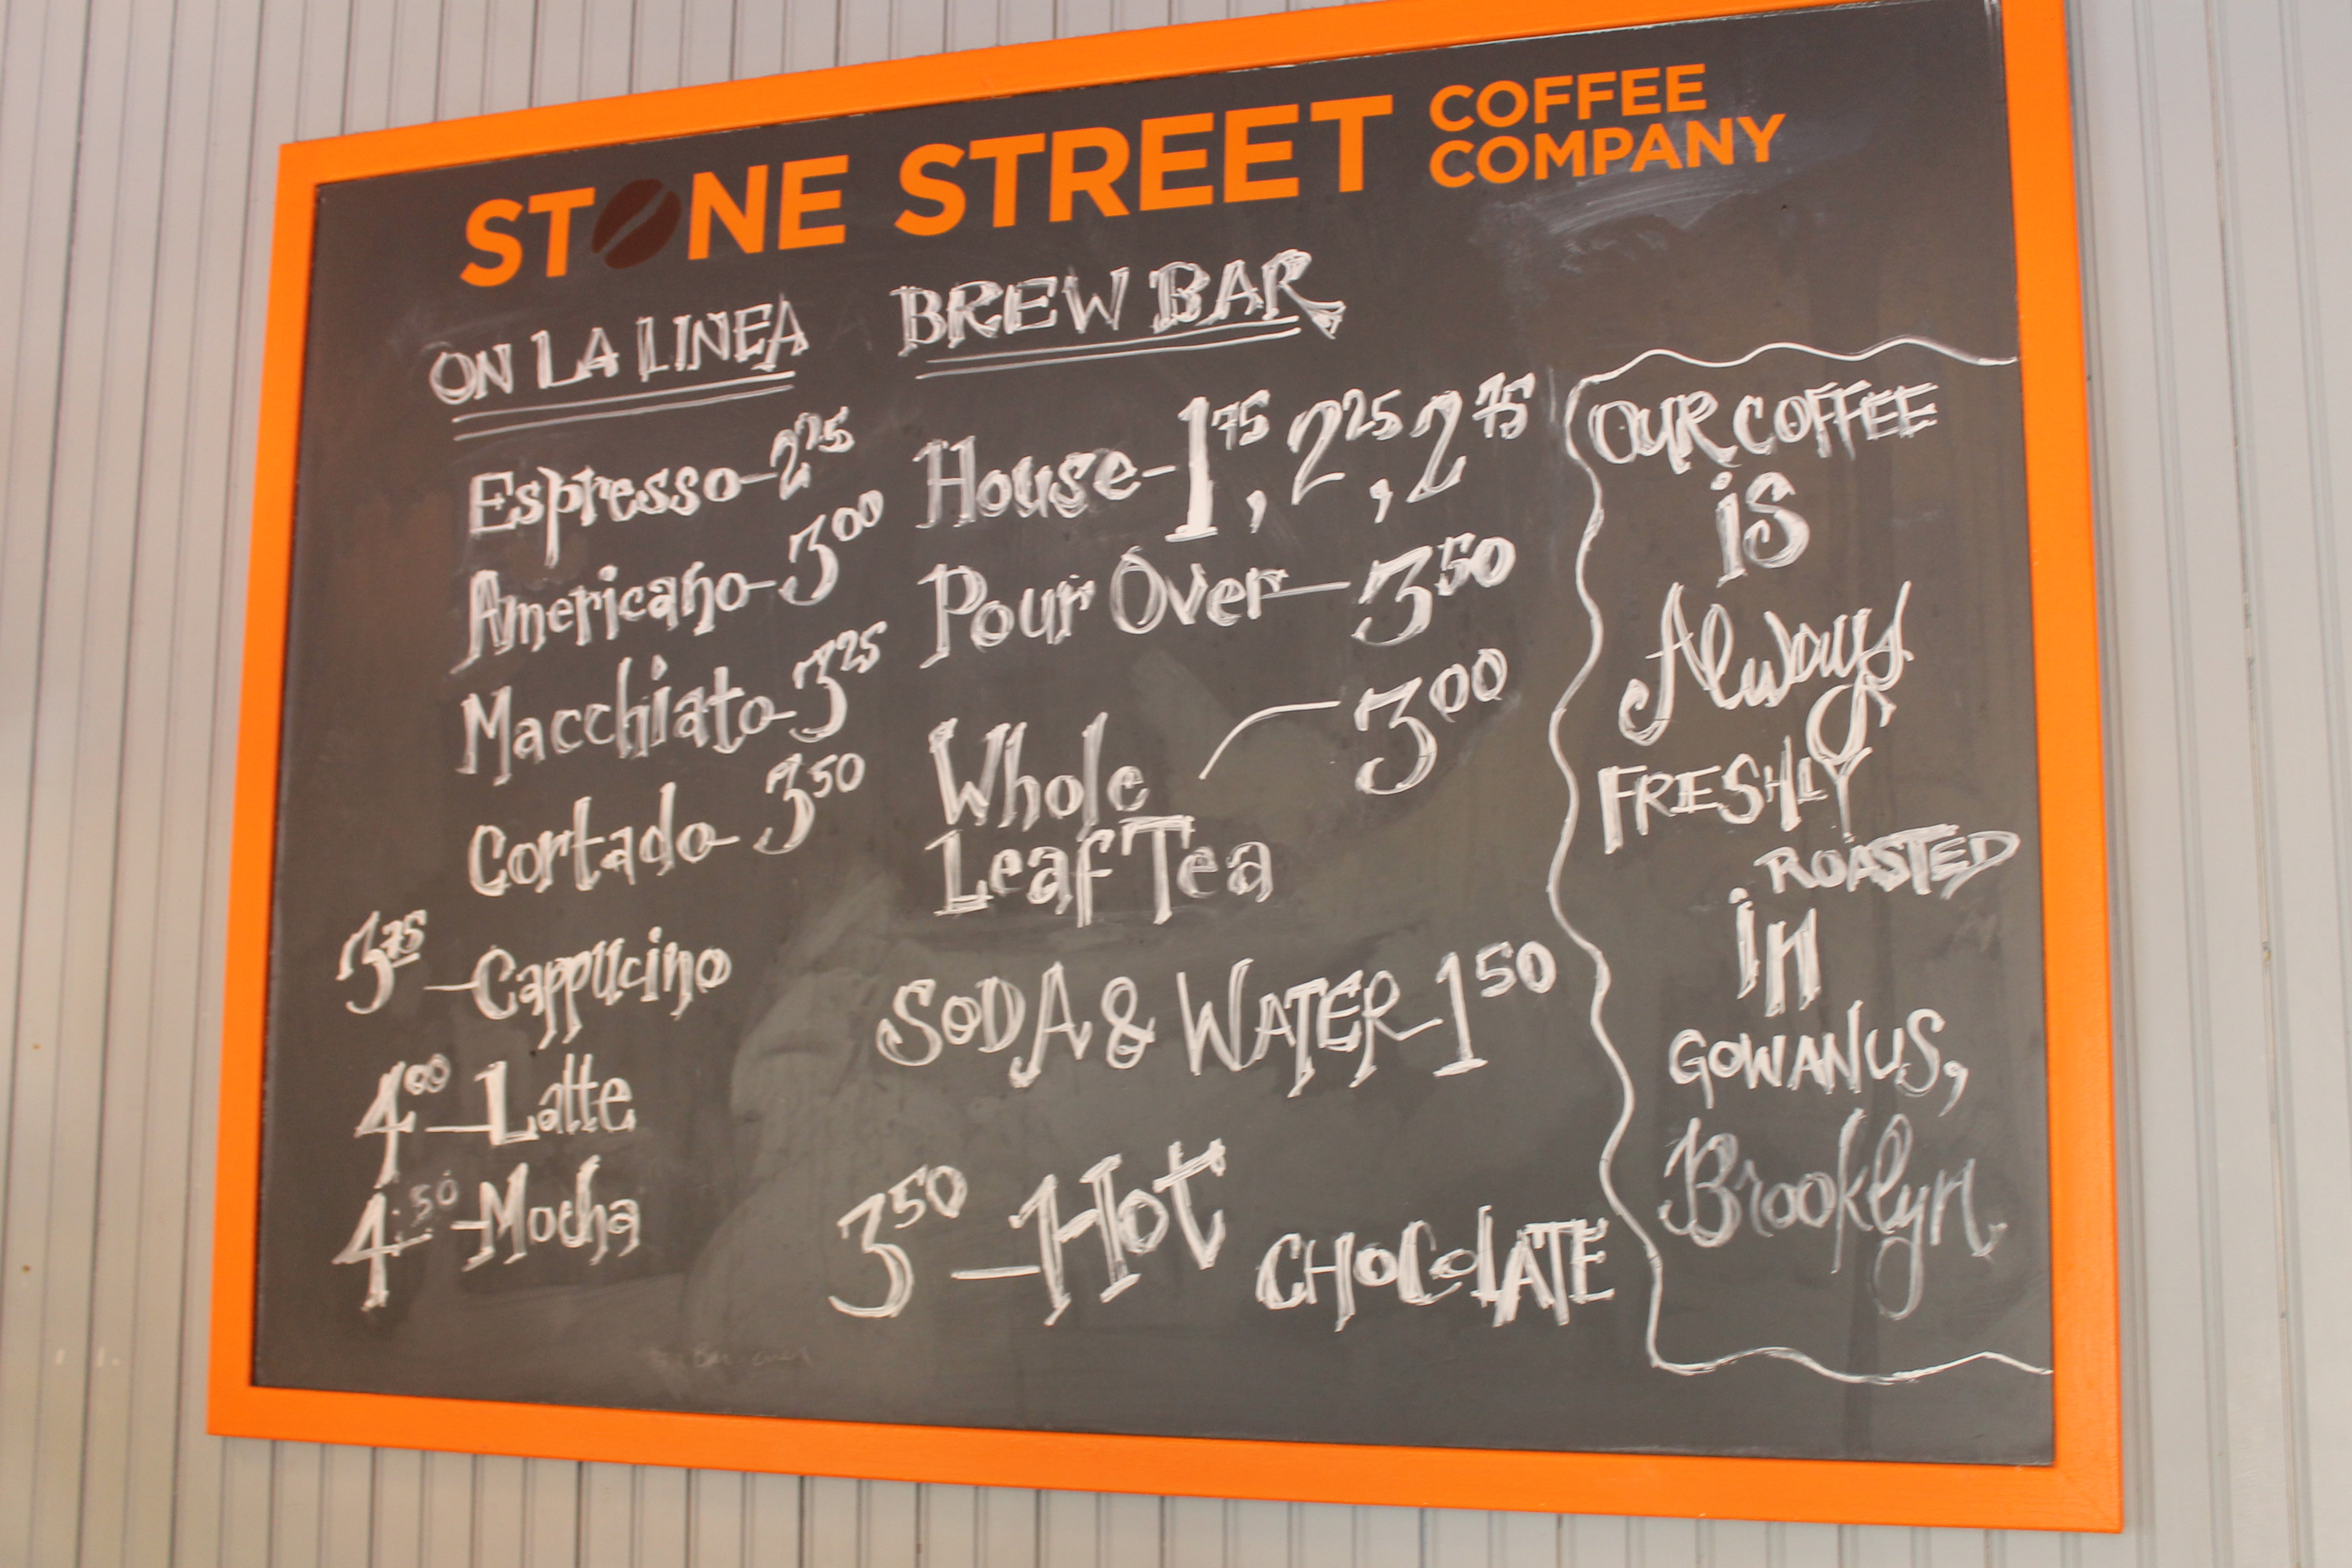 STONE STREET COFFEE COMPANY
ON LA LINEA
Espresso-2 75
Americano-3 00
Macchiato-3 25
Cortado-3 50
3 75-Cappucino
4 00-Latte
4 50-Mocha
BREW BAR
House-1 75, 2 25, 2 75
Pour Over-3 50
Whole 3 00
Leaf Tea
SODA & WATER-1 50
3 50-Hot CHOCOLATE
OUR COFFEE
iS
Always
FRESHLY
ROASTED
in
GOWANUS,
Brooklyn